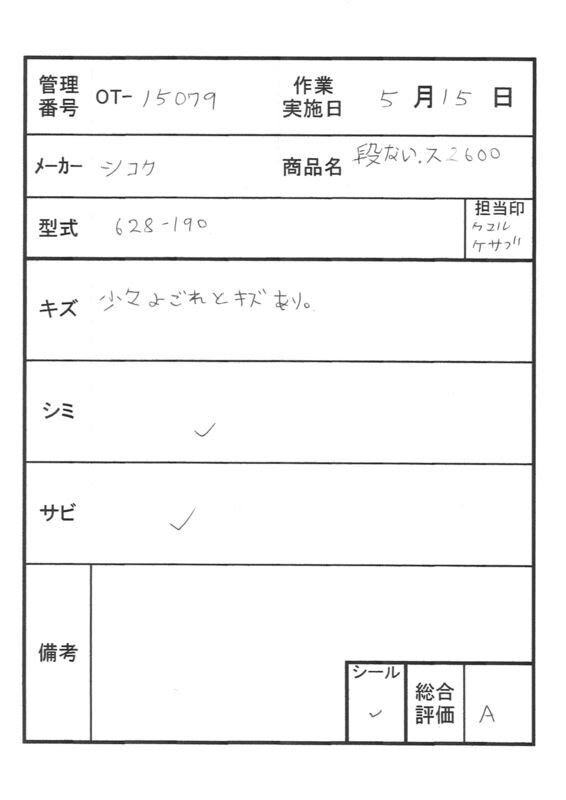 管理番号 OT-15079 作業実施日 5月15日
メーカー シコク 商品名 段ない.ス2600
型式 628-190 担当印
ケサブ
キズ 少々よごれとキズあり。
シミ ✓
サビ ✓
備考
シール ✓ 総合評価 A